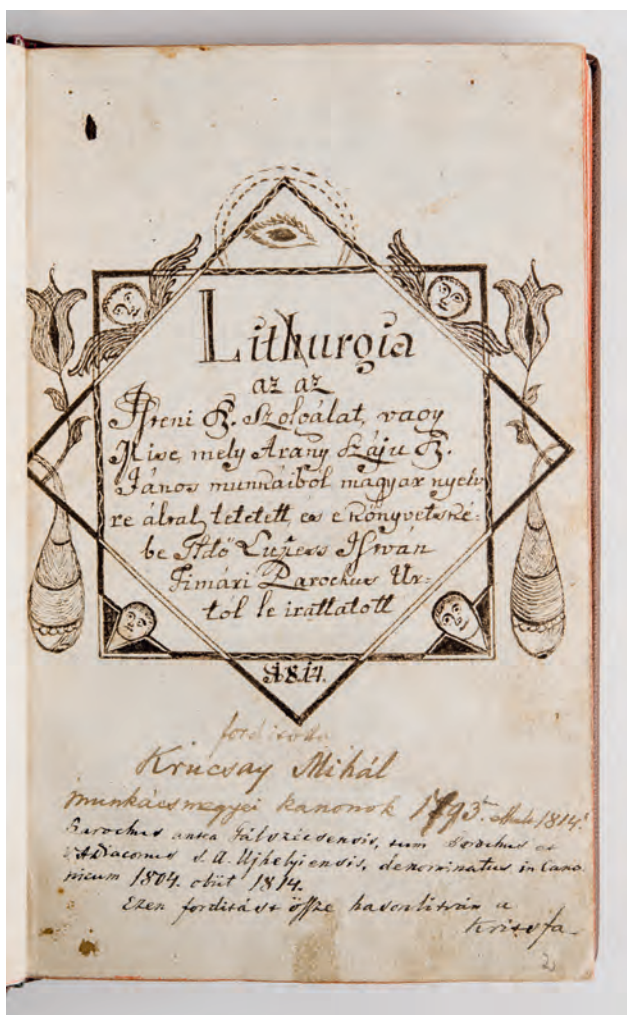 Lithurgia
az az
Isteni Sz. Szolgálat, vagy
Mise, mely Arany Száju Sz.
János munkáiból magyar nyelv-
re által tetetett, és e könyvetské-
be Ittdő Lupess István
Timári Parochus Ur-
tól le irattatott
1814.
forditotta
Krucsay Mihál
munkácsmegyei kanonok 1793. 1814.
Parochus antea Gálszécsensis, tum Parochus et
A.Diaconus S. A. Ujhelyiensis, denominatus in Cano
nicum 1804. obiit 1814.
Ezen forditást össze hasonlitván a
2